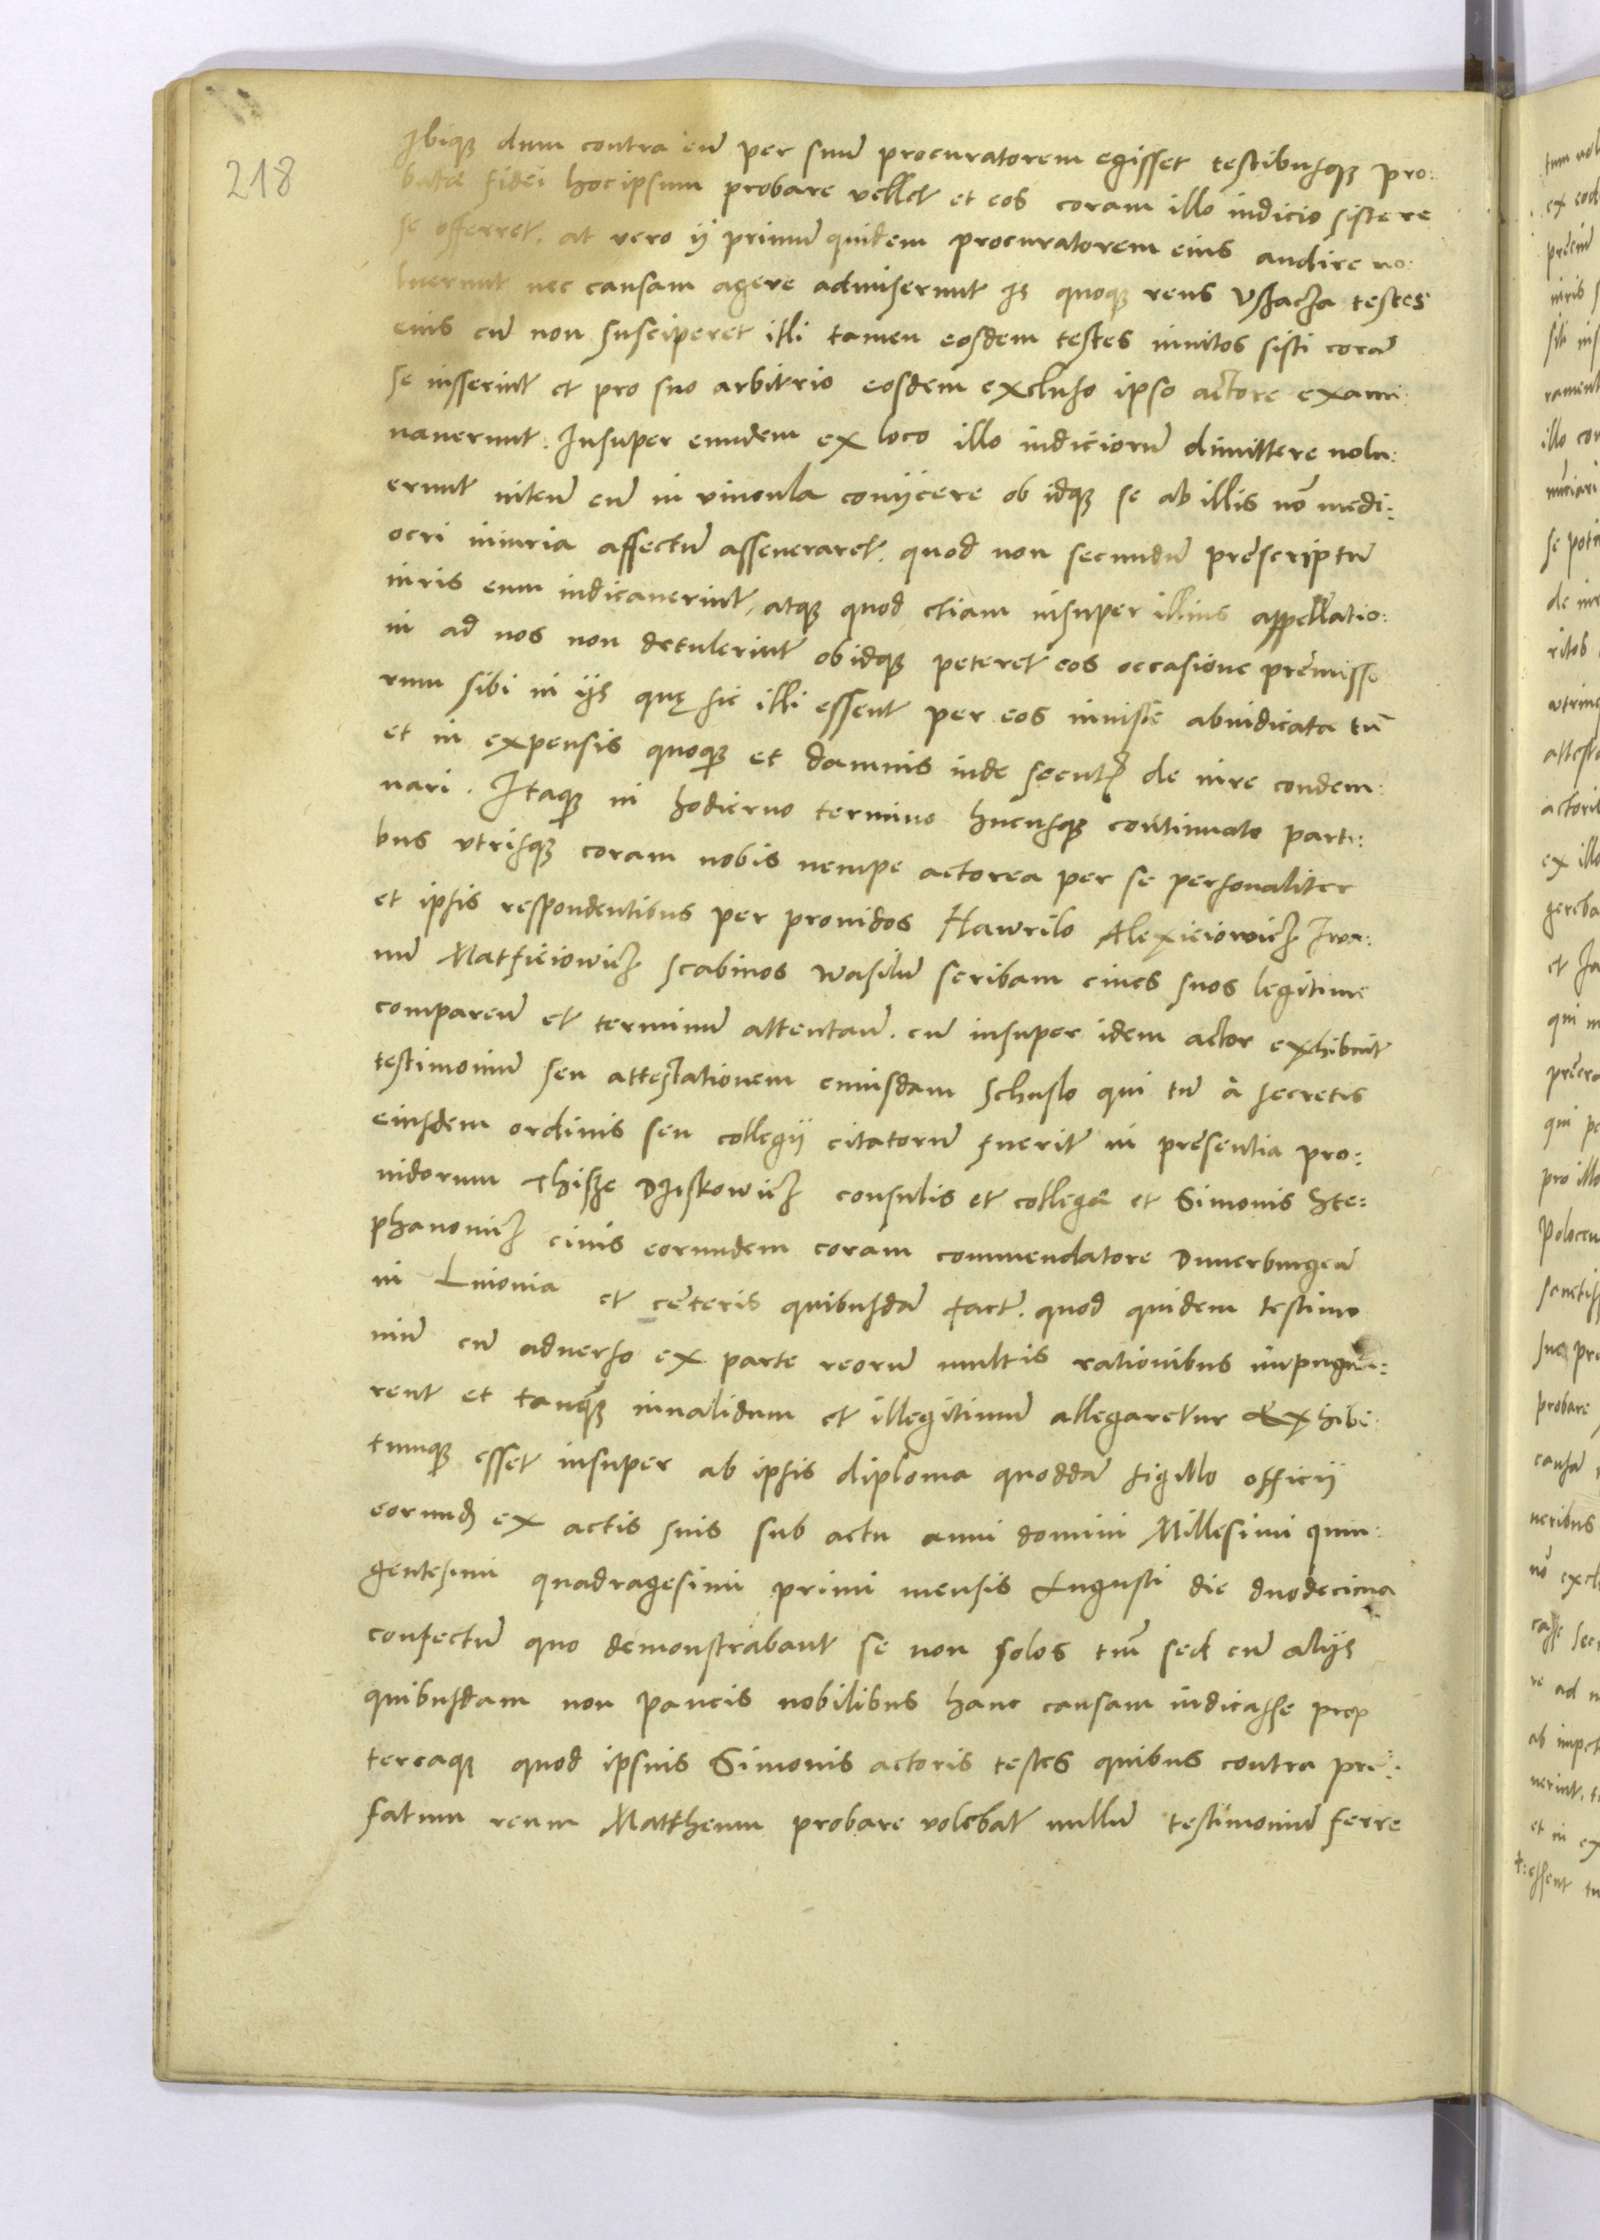 218
Ibiqꝫ dum contra eū per suū procuratorem egisset testibusqꝫ pro:
batæ fidei hoc ipsum probare vellet et eos coram illo iudicio sistere
se offerret. at vero ij primum quidem procuratorem eius audire no:
luerunt nec causam agere admiserunt Is quoqꝫ reus Vszacza testes
eius cū non susciperet illi tamen eosdem testes inuitos sisti corā
se iusserint et pro suo arbitrio eosdem excluso ipso actore exami:
nauerunt. Insuper eundem ex loco illo iudiciorū dimittere nolu:
erunt eū in vincula conijcere ob idqꝫ se ab illis nō medi:
ocri iniuria affectū asseueraret. quod non secundū prescriptū
iuris eum iudicauerint, atqꝫ quod etiam insuper illius appellatio:
ni ad nos non detulerint ob idqꝫ peteret eos occasione premisso
rum sibi in ijs quę sic illi essent per eos iniuste abiudicata tū
et in expensis quoqꝫ et damnis inde de iure condem:
nari. Itaqꝫ in hodierno termino hucusqꝫ continuato parti:
bus vtrisqꝫ coram nobis nempe actorea per se personaliter
et ipsis respondentibus per prouidos Hawrilo Alexieiowicz Iwa:
nū Matfieiowicz scabinos Wasilū scribam ciues suos legitime
comparen̄ et terminū attentan̄. cū insuper idem actor exhibuit
testimoniū seu attestationem cuiusdam Schuslo qui tū à secretis
eiusdem ordinis seu collegij citatorū fuerit in presentia pro:
uidorum Thisze Dziskowicz consulis et collegæ et Simonis Ste:
phanowicz ciuis eorundem coram commendatore Dunerburgeñ
in Liuonia et cęteris quibusdā fact̄. quod quidem testimo
niū cū aduerso ex parte reorū multis rationibus impugna:
rent et tanqꝫ inualidum et illegitimū allegaretur exhibi:
tumqꝫ esset insuper ab ipsis diploma quoddā sigillo officij
eorund̄ ex actis suis sub actu anni domini Millesimi quin:
gentesimi quadragesimi primi mensis Augusti die duodecima
confectū quo demonstrabant se non solos tm̄ sed cū alijs
quibusdam non paucis nobilibus hanc causam iudicasse prop
tereaqꝫ quod ipsius Simonis actoris testes quibus contra pre:
fatum reum Mattheum probare volebat nullū testimoniū ferre